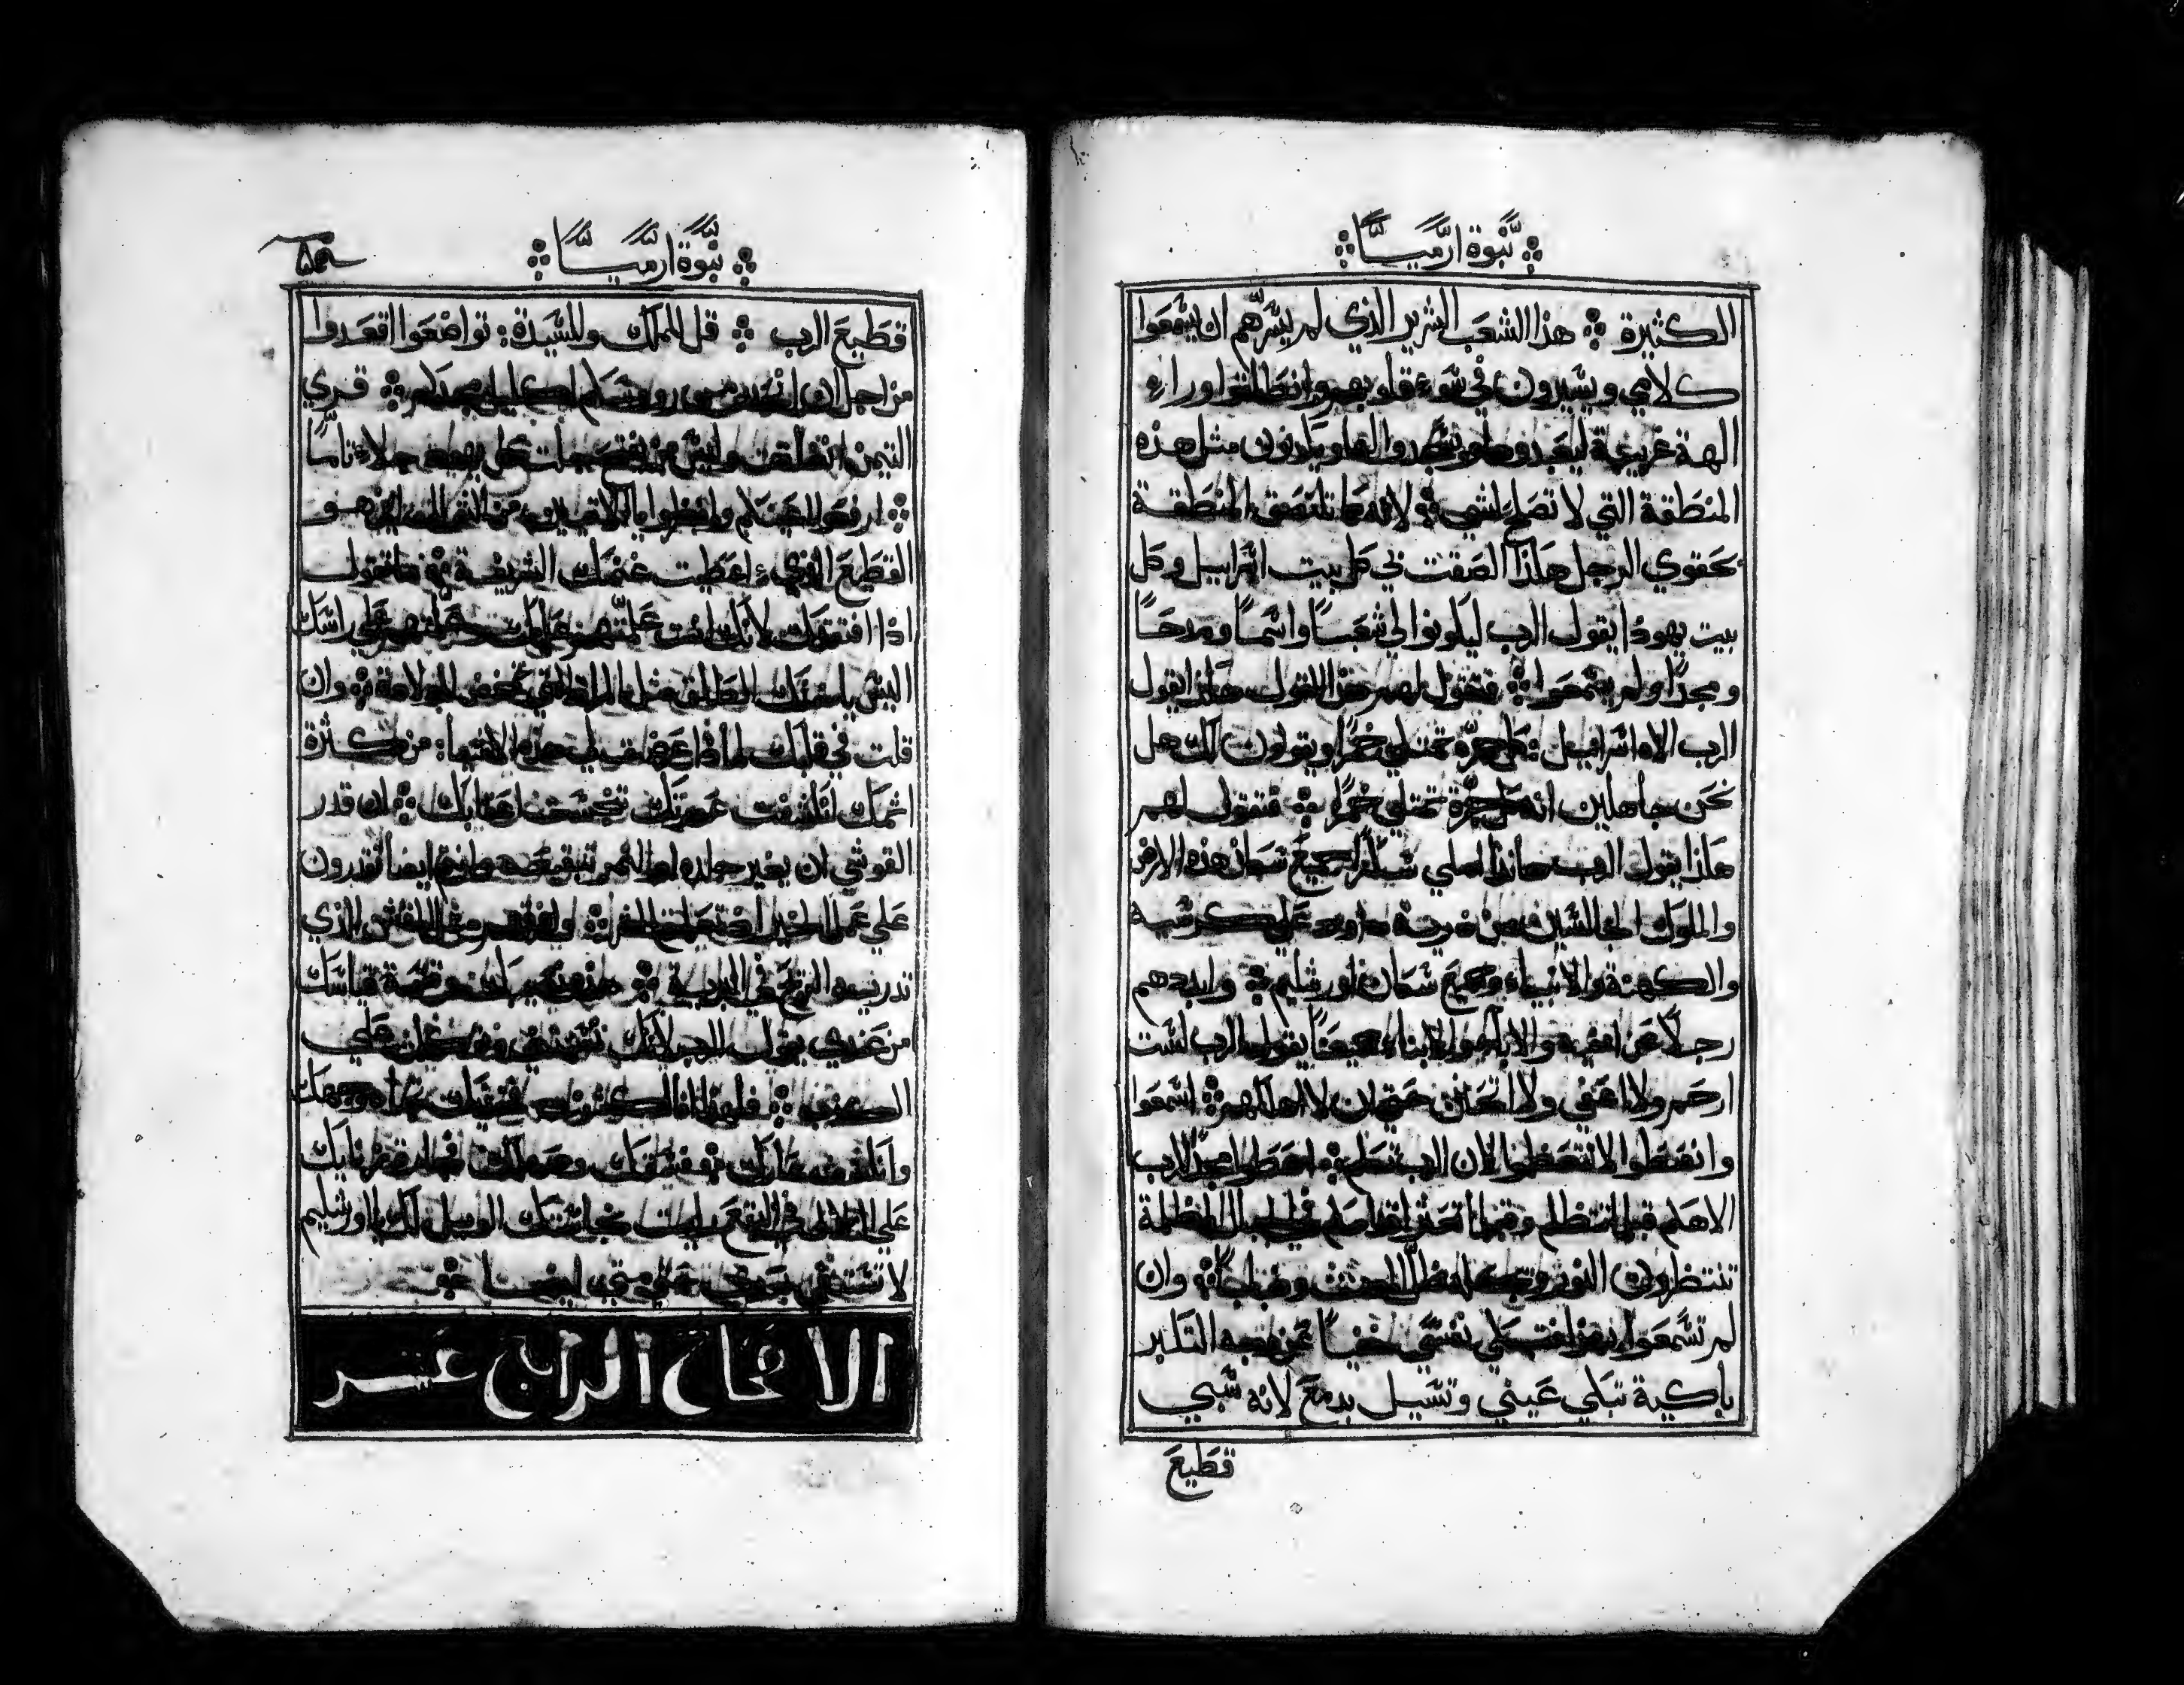 نبوة ارميا
الكثيرة هذا الشعب الشرير الذي لم يسرهم ان يسمعوا
كلامي ويسيرون في سوء قلوبهم وانطلقوا وراء
الهة غريبة ليعبدوها ويسجدوا لها ويكونون مثل هذه
المنطقة التي لا تصلح لشي لانه كما تلتصق المنطقة
بحقوي الرجل هكذا الصقت بي كل بيت اسراييل وكل
بيت يهودا يقول الرب ليكونوا لي شعبًا واسمًا ومدحًا
ومجدًا ولم يسمعوا فتقول لهم هذا القول هكذا يقول
الرب الاه اسراييل كل جرة تمتلي خمرًا ويقولون لك هل
نحن جاهلين انه كل جرة تمتلي خمرًا فتقول لهم
هكذا يقول الرب هانذا املي سكرًا جميع سكان هذه الارض
والملوك الجالسين من ذرية داود علي كرسيه
والكهنة والانبياء وجميع سكان اورشليم وابددهم
رجلًا عن اخيه والابا والابناء جميعًا يقول الرب لست
ارحم ولا اعفي ولا اتحنن حتي ان لا اهلكهم اسمعوا
وانصتوا لا تتعظموا لان الرب تكلم اعطوا مجدًا للرب
الاهكم قبل تظلم وقبل تعثر اقدامكم في الجبال المظلمة
تنتظرون النور وتجد ظل الموت وضبابًا وان
لم تسمعوا بهذا تبكي نفسي خفيًا عن وجه التكبر
باكية تبكي عيني وتسيل بدمع لانه سبي
قطيع
نبوة ارميا
قطيع الرب قل للملك وللسيدة تواضعوا اقعدوا
من اجل ان انحدر من رووسكم اكليل مجدكم قري
التيمن انغلقت وليس من يفتح جلت كل يهودا جلاء تامًا
ارفعوا اعينكم وانظروا يا الاتيين من الشمال اين هو
القطيع الذي اعطيت غنمك الشريفة ما تقول
اذا افتقدك لانك انت علمتهم عليك جعلتهم علي راسك
اليس ياخذك الطلق مثل المراة التي تمخض للولادة وان
قلت في قلبك لماذا عرض لي هذه الاشيا من كثرة
اثمك انكشفت عورتك تنجست اعقابك ان قدر
القوشي ان يغير جلده او النمر تبقيعه وانتم ايضا تقدرون
علي عمل الخير اذ تعلمتم الشر وافرقهم مثل القش الذي
تدريه الريح في البرية هذه نصيبك وقسمة قياسك
من عندي يقول الرب لانك نسيتني وتوكلتي علي
الكذب فلهذا انا اكشف فخذيك تجاه وجهك
وانكشف عارك فسقك وصهيلك نفاق زناك
علي التلال في البقع رايت نجاستك الويل لك يا اورشليم
لا تتنقي بعدي حتي متي ايضا
الاصحاح الرابع عشر